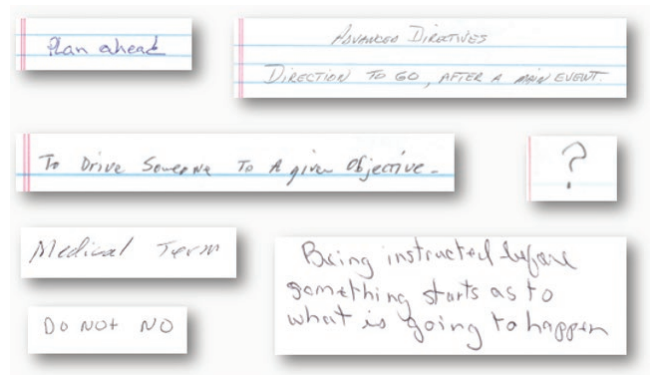 Plan ahead
ADVANCED DIRECTIVES
DIRECTION TO GO, AFTER A MAIN EVENT.
To Drive Someone To A given Objective.
?
Medical Term
Do Not NO
Being instructed before
something starts as to
what is going to happen